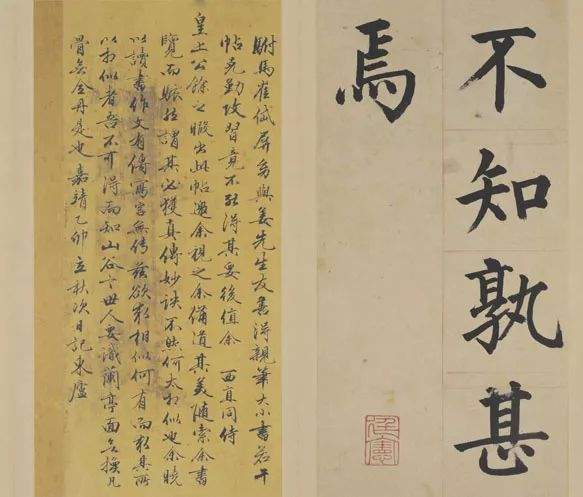 不知孰甚
焉
駙馬崔岱屏与姜先生友善得親筆大小書若干
帖克勤攻習竟不能得其妥後值余西直同侍
皇上公餘之暇出此帖邀余視之余備道其美隨索余書
覽而賑然謂其必獲真傳妙訣不然何大相似也余曉
以讀書作文有傳寫字無傳茲欲求相似何有而求其所
以相似者吾不可得而知山谷云世人要識蘭亭面無換凡
骨無金丹是也嘉靖乙卯立秋次日記東廬